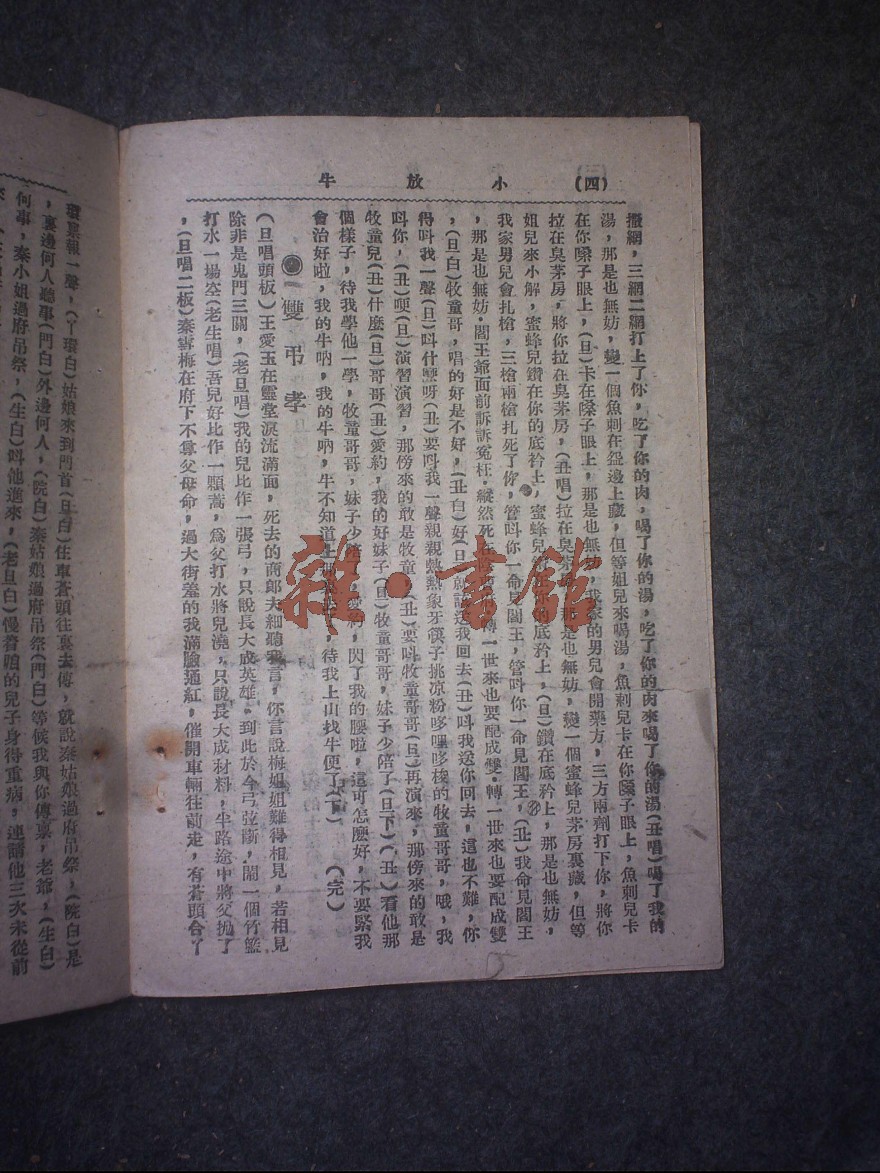 (四) 小放牛
撒網,三網二網打上了你,吃了你的肉,喝了你的湯,吃了你的肉來喝了你的湯(丑唱)喝了我的
湯,那是也無妨,變一個魚刺在盌邊上藏,但等姐兒來喝湯,魚刺兒卡在你嗓子眼上,魚刺兒卡
在你嗓子眼上,(旦)卡在嗓子眼上,那是也無妨,我家的男兒會開藥方,三方兩劑打下你,將你
拉在臭茅房,將你拉在臭茅房,(丑唱)拉在臭茅房,那是也無妨,變一個蜜蜂兒茅房裏藏,但等
姐兒來小解,蜜蜂兒鑽在你的底衿上,蜜蜂兒鑽在你的底衿上,(旦)鑽在底衿上,那是也無妨,
我家男兒會扎槍,三槍兩槍扎死了你,管呌你一命見閻王,管呌你一命見閻王,(丑)我命見閻王
,那是也無妨,閻王爺面前訴訴寃枉,縱然死在陰曹,轉一世來也要配成雙,轉一世來也要配成雙
,(旦白)牧童哥,唱的好是不好,(丑白)好(旦)就該送我回去(丑)呌我送你回去,這也不難,你
得呌我一聲(旦)呌什麼呀(丑)要呌我一聲親親熱熱象牙筷子挑凉粉哆哩哆梭的牧童哥哥,哦,我
呌你,(丑)哽(旦)演習演習,那傍來的敢是牧童(丑)要呌牧童哥哥(旦)再演來,那傍來的敢是
牧童兒(丑)什麼(旦)哥哥(丑)愛約,我的好妹子(旦)牧童哥哥,妹子少陪了(旦下)(丑)看他那
個樣子,待我學他一學,牧童哥哥,妹子少陪了,愛約,閃了我的腰啦,這可怎麼好,不要緊我
會治好啦,我的牛吶,我的牛吶,牛不知道上那,待我上山找牛便了(下) (完)
雙弔孝
(旦唱頭板)王愛玉在靈堂淚流滿面,死去的商郎夫細聽我言,你言說梅姐姐難得相見,若相見
除非是鬼門三關,(老旦唱)我的兒比作一張弓,只說長大成英雄,到此於今弓弦斷,鬧一個竹籃
打水一場空(老生唱)吾兒好比作一顆蒿,爲父打水將兒澆,只說長大成材料,半路途中將父拋了
,(旦唱二板)秦雪梅在府下不尊父母命,過大街羞的我滿臉通紅,催開車輛往前走,有蒼頭合丫
環裏報一聲,(丫環白)姑娘來到門首(旦白)住車蒼頭往裏去傳,就說秦姑娘過府吊祭,(院白)是
,裏邊何人聽事(門白)外邊何人,(院白)秦姑娘過府吊祭(門白)等候我與你傳禀,老爺,(生白)
何事,秦小姐過府吊祭,(生白)呌他進來,(老旦白)慢着咱的兒子身得重病,連請他三次未從前
雜·書館